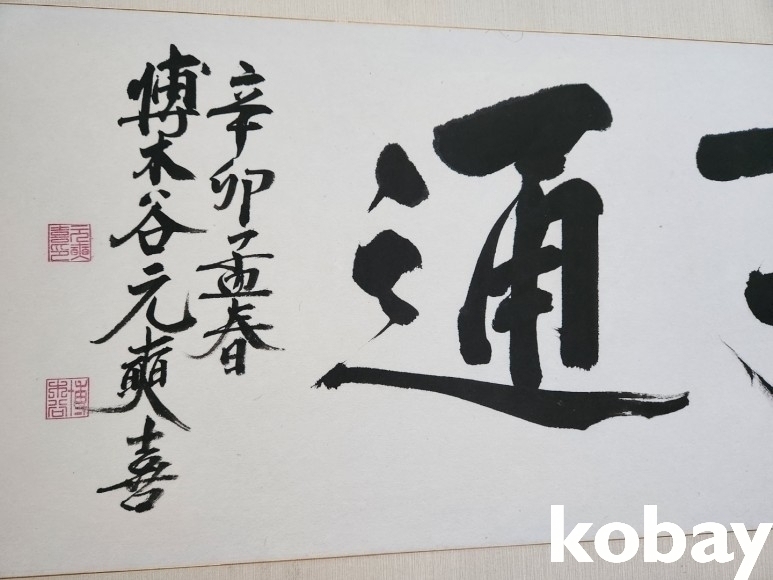 通
辛卯孟春
博木谷元奭喜
kobay